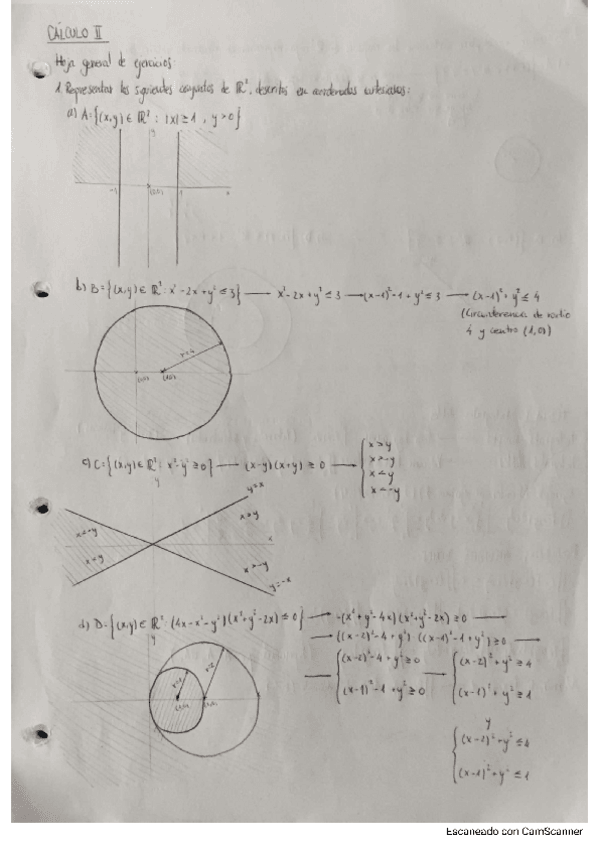 CÁLCULO II
Hoja general de ejercicios:
1. Representar los siguientes conjuntos de ℝ², descritos en coordenadas cartesianas:
a) A={(x,y)∈ ℝ² : |x|≥1 , y>0}
y
-1 (0,0) 1 x
b) B={(x,y)∈ ℝ² : x²-2x+y²≤3} → x²-2x+y²≤3 → (x-1)²-1+y²≤3 → (x-1)²+y²≤4
(Circunferencia de radio
4 y centro (1,0))
r=4
(0,0) (1,0)
c) C={(x,y)∈ ℝ² : x²-y²≥0} → (x-y)(x+y)≥0 →
x>y
x>-y
y
y=x
x>y
x<-y
x
x<y
x>-y
y=-x
d) D={(x,y)∈ ℝ² : (4x-x²-y²)(x²+y²-2x)≤0} → -(x²+y²-4x)(x²+y²-2x)≥0
→ ((x-2)²-4+y²) ((x-1)²-1+y²)≥0
y
(x-2)²-4+y²≥0 → (x-2)²+y²≥4
(x-1)²-1+y²≥0 (x-1)²+y²≥1
r=2
r=1
(1,0) (2,0)
y
(x-2)²+y²≤4
(x-1)²+y²≤1
Escaneado con CamScanner